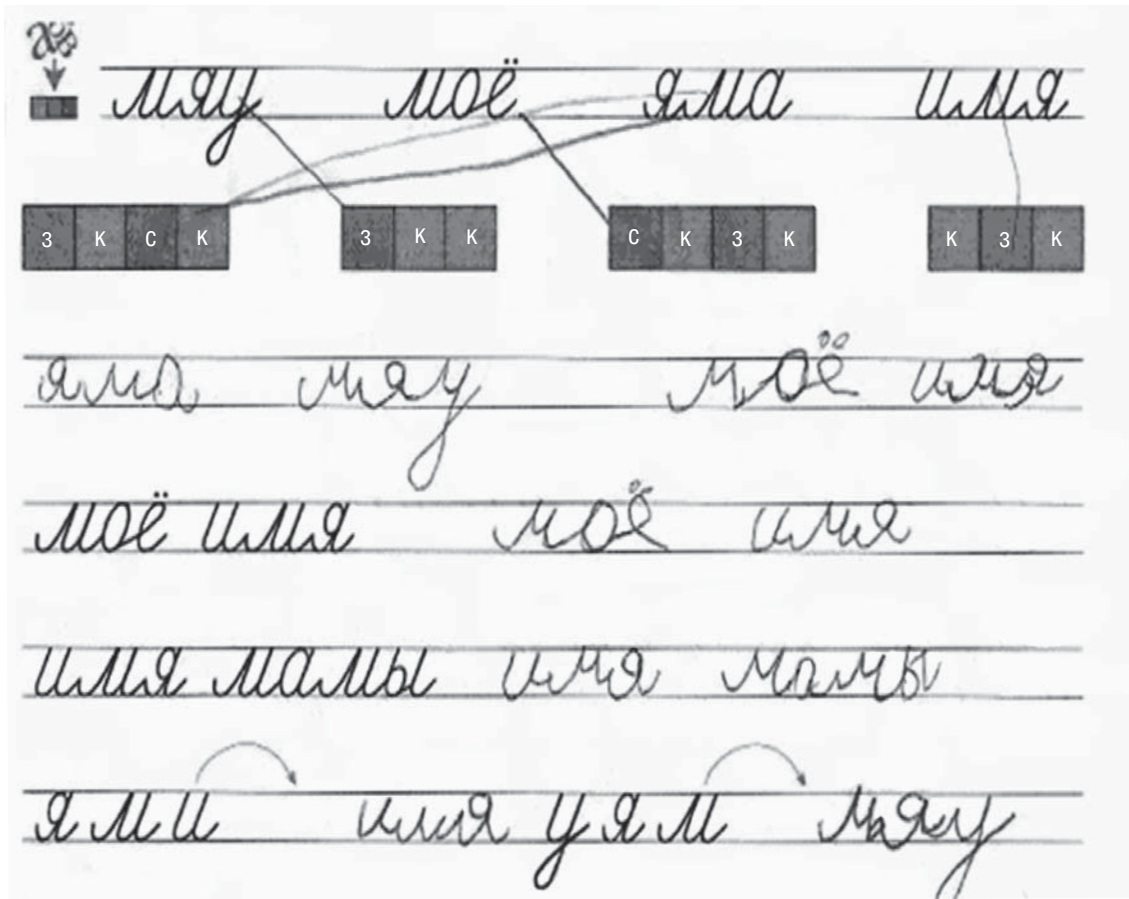 мяу моё яма имя
З К С К З К К С К З К К З К
яма мяу моё имя
моё имя моё имя
имя мамы имя мамы
я м и имя у я м мяу